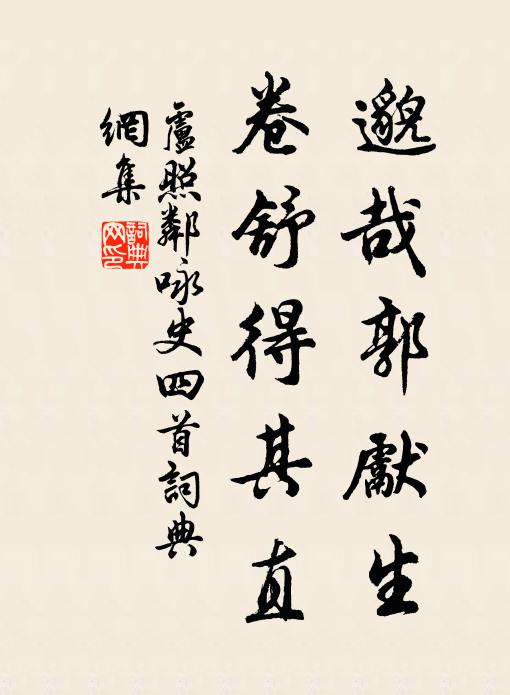 邈哉郭獻生
卷舒得其直
盧照鄰咏史四首詞典
網集
詞典
网印